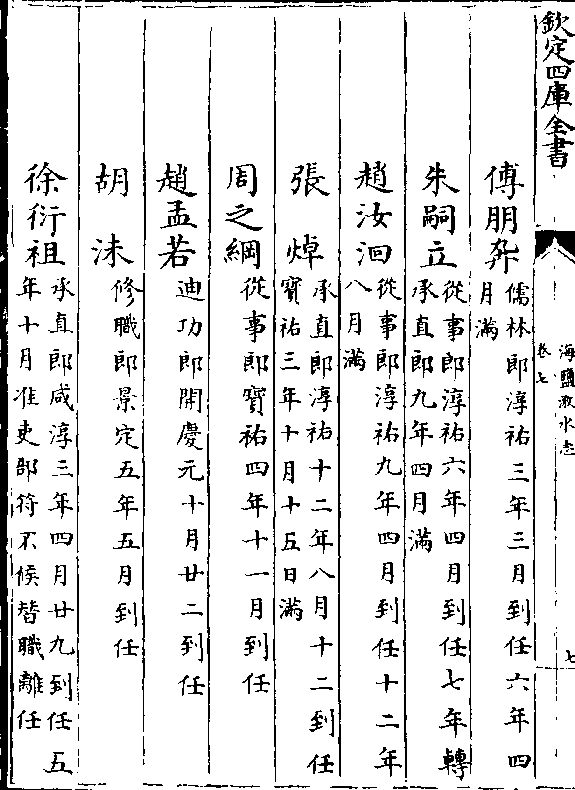 欽定四庫全書
海鹽澉水志
卷七
七
傅朋
儒林郎淳祐三年三月到任六年四
月滿
朱嗣立
從事郎淳祐六年四月到任七年轉
承直郎九年四月滿
趙汝洄
從事郎淳祐九年四月到任十二年
八月滿
張焯
承直郎淳祐十二年八月十二到任
寳祐三年十月十五日滿
周之綱
從事郎寳祐四年十一月到任
趙孟若
迪功郎開慶元十月廿二到任
胡洙
修職郎景定五年五月到任
徐衍祖
承直郎咸淳三年四月廿九到任五
年十月准吏部符不候替職離任